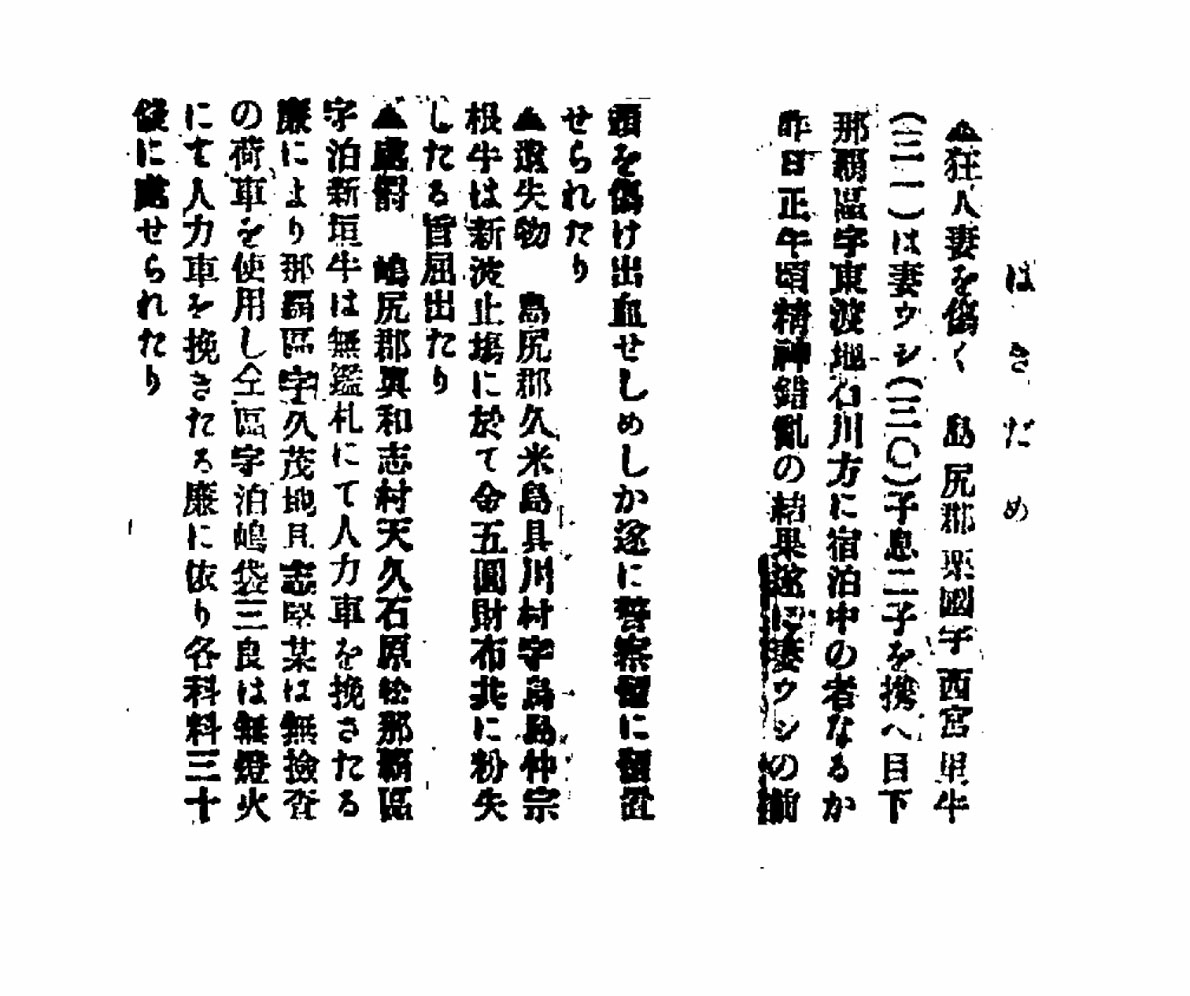 はきだめ
▲狂人妻を傷く　島尻郡粟國字西宮里牛
(三一)は妻ウシ(三〇)子息二子を携へ目下
那覇區字東渡地石川方に宿泊中の者なるか
昨日正午頃精神錯亂の結果遂に妻ウシの前
頭を傷け出血せしめしか遂に警察署に留置
せられたり
▲遺失物　島尻郡久米島具川村字鳥島仲宗
根牛は新波止塲に於て金五圓財布共に粉失
したる旨屆出たり
▲處罸　嶋尻郡眞和志村天久石原松那覇區
字泊新垣牛は無鑑札にて人力車を挽きたる
廉により那覇區字久茂地具志堅某は無檢査
の荷車を使用し仝區字泊嶋袋三良は無燈火
にて人力車を挽きたる廉に依り各科料三十
錢に處せられたり